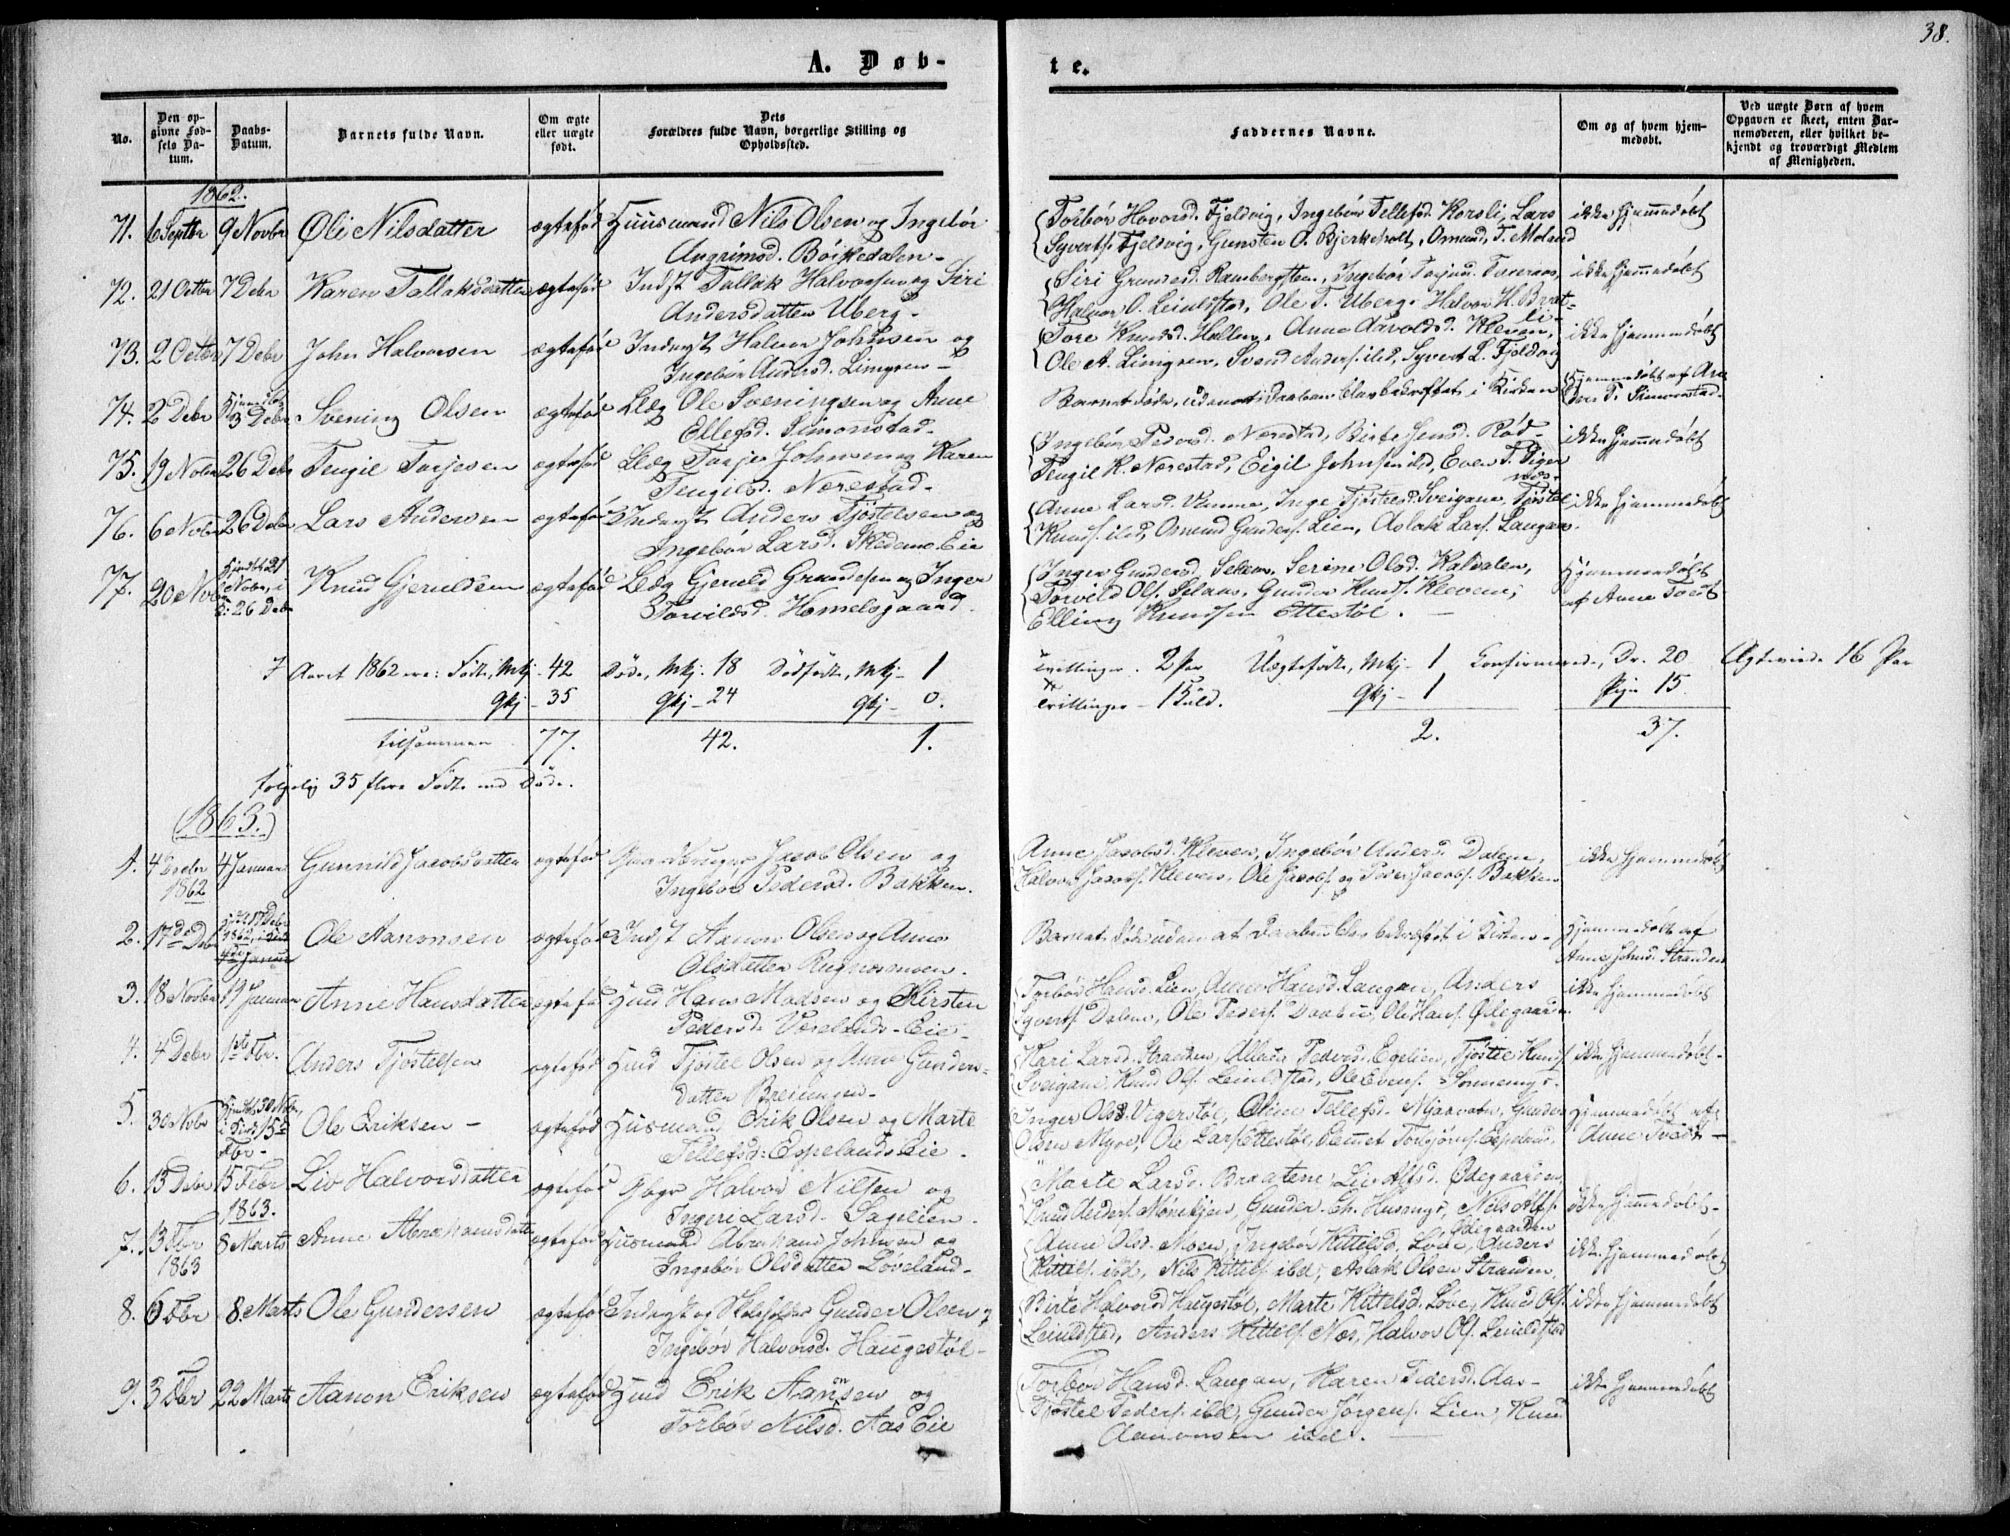 38.
A. Døb-
te.
No.
Den op-
givne Fød-
sels Da-
tum.
Daabs-
Datum.
Barnets fulde Navn.
Om ægte
eller uægte
født.
Dets
Forældres fulde Navn, borgerlige Stilling og
Opholdssted.
Faddernes Navne.
Om og af hvem hjem-
medøbt.
Ved uægte Børn af hvem
Opgaven er skeet, enten Bar-
nemoderen, eller hvilket be-
kjendt og troværdigt Medlem
af Menigheden.
1862.
71. 6 Septbr 9 Novbr Øli Nilsdatter ægtefød Huusmand Nils Olsen og Ingebør
Angrimsd. Böskedalen -
Torbør Hovorsd. Fjeldvig, Ingebør Tellefsd. Korsli, Lars
Syverts. Fjeldvig, Gunsten O. Bjerkeholt, Omund T. Moland
ikke hjemmedøbt
72. 21 Octbr 7 Debr Karen Tallaksdatter ægtefød Indst Tallak Halvorsen og Siri
Andersdatter Uberg -
Siri Gundersd. Ramberg, Ingebør
Halvor O. Leiulfstad, Ole T. Uberg, Halvor K. Brat-
li -
ikke hjemmedøbt
73. 2 Octbr 7 Debr John Halvorsen ægtefød Inderst Halvor Johnsen og
Ingebør Andersd. Limyren -
Tore Knudsd. Hallen, Anne Aavoldsd. Kleven,
Ole A. Limyren, Svend Anders. ibid, Syvert L. Fjeldvig
ikke hjemmedøbt
74. 2 Debr 3 Debr Svening Olsen ægtefød LLæg Ole Sveningsen og Anne
Ellefsd. Simonstad -
Barnet døde, uden at Daaben blev bekræftet i Kirken
Hjemmedøbt af An-
ders T. Simonstad -
75. 19 Novbr 26 Debr Tengil Torjesen ægtefød LLæg Torje Johnsen og Karen
Tengilsd. Nærestad -
Ingebør Pedersd. Nærestad, Birte Jensd. Rød -
Tengil K. Nærestad, Eigil Johnsen ibid, Even T. Viger
ikke hjemmedøbt
76. 6 Novbr 26 Debr Lars Andersen ægtefød Inderst Anders Tjøstelsen og
Ingebør Larsd. Skedsmo Eie
Anne Larsd. Vimme, Inge Tjøstelsd. Sveigane, Tjøstel
Knuds. ibid, Omund Gunders. Lien, Aslak Lars. Langaas.
ikke hjemmedøbt
77. 20 Novbr Hjmdbt 21
Novbr, i
K: 26 Debr
Knud Gjeruldsen ægtefød LLæg Gjeruld Gundersen og Inger
Torvildsd. Homelsgaard.
Inger Gundersd. Selaas, Serine Olsd. Kalvalen,
Torvild Ols. Selaas, Gunder Knuds. Kleven,
Elling Knudsen Ottestøl. -
Hjemmedøbt
af Anne Tveit
I Aaret 1862 ere: Fødte, Mkj - 42 Døde, Mkj. 18 Dødfødte, Mkj - 1
Tvillinger. 2 Par Uægtefødte, Mkj - 1 Confirmerede, Dr. 20 Ægteviede 16 Par
Qkj - 35 Qkj - 24 Qkj - 0.
Trillinger - 1 Kuld. Qkj - 1 Pige 15
tilsammen 77. 42. 1.
2. 37.
følgelig 35 flere Fødte end Døde.
(1863.)
1. 4 Decbr 4 Januar Gunnild Jacobsdatter ægtefød Gaardbruger Jacob Olsen og
1862 Ingebør Pedersd. Bakken.
Anne Jacobsd. Kleven, Ingebør Andersd. Dalen,
Halvor Jacobs. Kleven, Ole Jacobs. og Peder Jacobs. Bakken
ikke hjemmedøbt
2. 17de Debr Ole Aanonsen ægtefød Indst Aanon Olsen og Anne
Olsdatter Rugnesmoen.
Barnet døde uden at Daaben blev bekræftet i Kirken -
Hjemmedøbt af
Anne Johnsd. Stranden
3. 18 Novbr 19 Januar Anne Hansdatter ægtefød Huusd Hans Madsen og Kirsten
Pedersd. Væselands-Eie -
Torbør Hansd. Lien, Anne Hansd. Langaas, Anders
Syverts. Dalen, Ole Peders. Daabu, Ole Hans. Ødegaarden
ikke hjemmedøbt
4. 4 Debr 1ste Fbr. Anders Tjøstelsen ægtefød Huusd Tjøstel Olsen og Anne Gunders-
datter Breiungen -
Kari Larsd. Stranden, Pedersd. Egelien, Tjøstel Knuds.
Sveigane, Knud Ols. Leiulfstad, Ole Evens. Sonnemyr -
ikke hjemmedøbt -
5. 30 Novbr Hjmdbt 30 Novbr,
i Kirk 15de
Fbr -
Ole Eriksen - ægtefød Huusmand Erik Olsen og Marte
Tellefsd. Espelands Eie.
Inger Olsd. Vegerstøl, Oline Tellefsd. Mjaavatn, Gunder
Olsen Myre, Ole Lars. Ottestøl, Clemet Torbjørns. Espeland,
Hjemmedøbt af
Anne Tveit -
6. 13 Debr 15 Febr Liv Halvorsdatter ægtefød Gbgr Halvor Nilsen og
1863. Ingeri Larsd. Sagelien.
Marte Larsd. Braatene, Liv Alfsd. Ødegaarden,
Knud Anders. Mønekjen, Gunder Ch. Husmyr, Nils Alfs.
Ødegaarden
ikke hjemmedøbt -
7. 13 Fbr 8 Marts Anne Abrahamsdatter ægtefød Huusmand Abraham Johnsen og
1863 Ingebør Olsdatter Løveland -
Anne Olsd. Moen, Ingebør Kittilsd. Løve, Anders
Kittils. ibd, Nils Kittils. ibd, Aslak Olsen Stranden,
ikke hjemmedøbt
8. 6 Fbr 8. Marts Ole Gundersen ægtefød Inderst og Skolelærer Gunder Olsen &
Ingebør Halvorsd. Haugestøl -
Birte Halvorsd. Haugestøl, Marte Kittelsd. Løve, Knud Ols.
Leiulfstad, Anders Kittels. Næs, Halvor Ols. Leiulfstad
ikke hjemmedøbt
9. 3 Fbr 22 Marts Aanon Eriksen ægtefød Huusd Erik Aanonsen og
Torbør Nilsd. Aas Eie
Torbør Hansd. Langaas, Karen Pedersd. Aas -
Tjøstel Peders. ibd, Gunder Jørgens. Lien, Knud
Aanonsen ibd. -
ikke hjemmedøbt